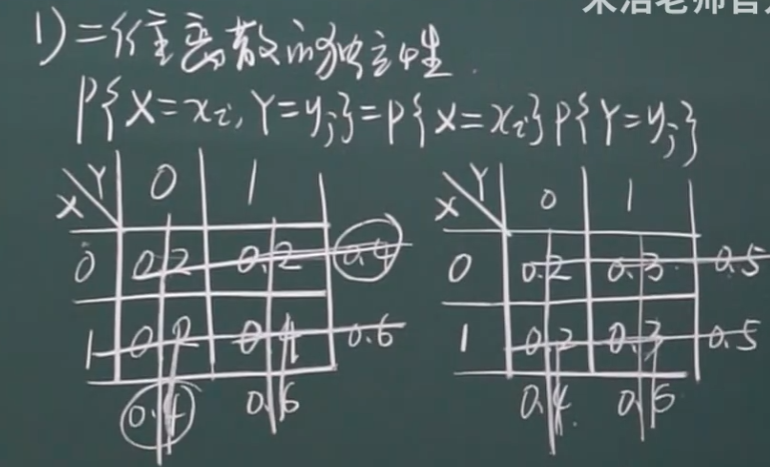 宋浩老师官方
1) 二维离散的独立性.
P{X=xᵢ, Y=yⱼ}=P{X=xᵢ}P{Y=yⱼ}
X Y 0 1
0 0.2 0.2 0.4
1 0.2 0.4 0.6
0.4 0.6
X Y 0 1
0 0.2 0.3 0.5
1 0.2 0.3 0.5
0.4 0.6